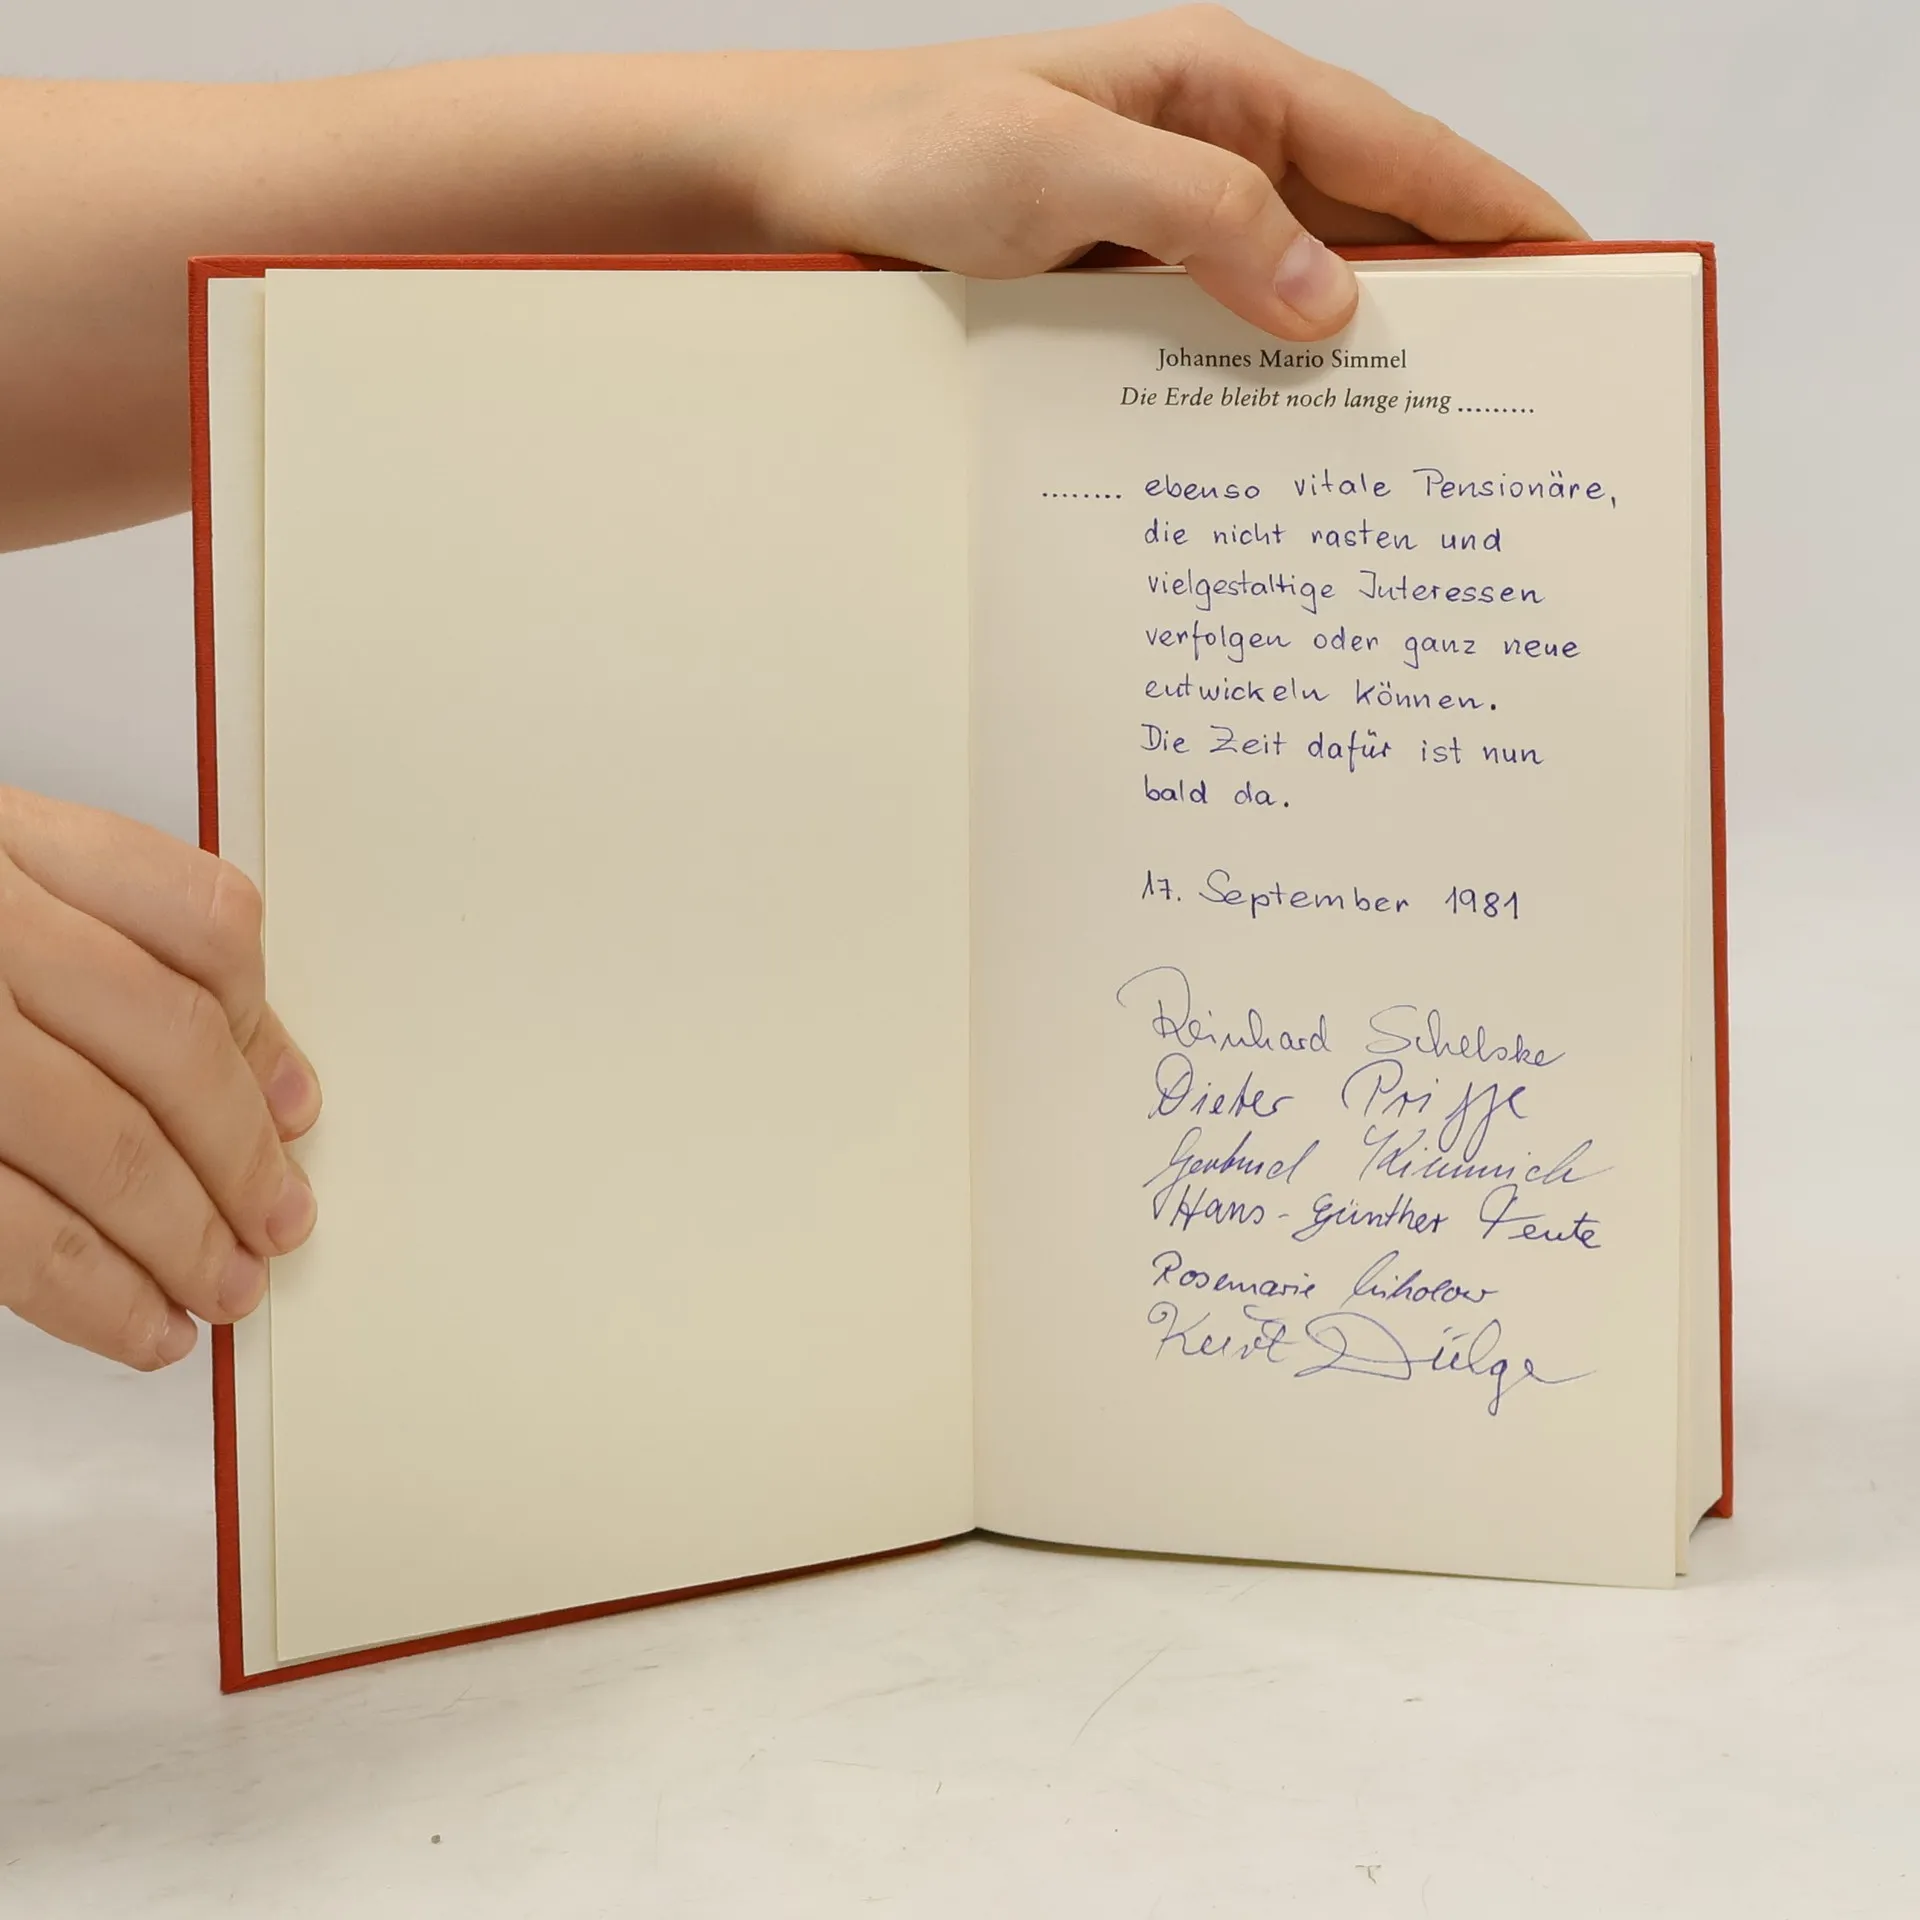 Johannes Mario Simmel
Die Erde bleibt noch lange jung .........
........ ebenso vitale Pensionäre,
die nicht rasten und
vielgestaltige Interessen
verfolgen oder ganz neue
entwickeln können.
Die Zeit dafür ist nun
bald da.
17. September 1981
Reinhard Schelske
Dieter
Hans-Günther
Rosemarie
Kurt Dülge